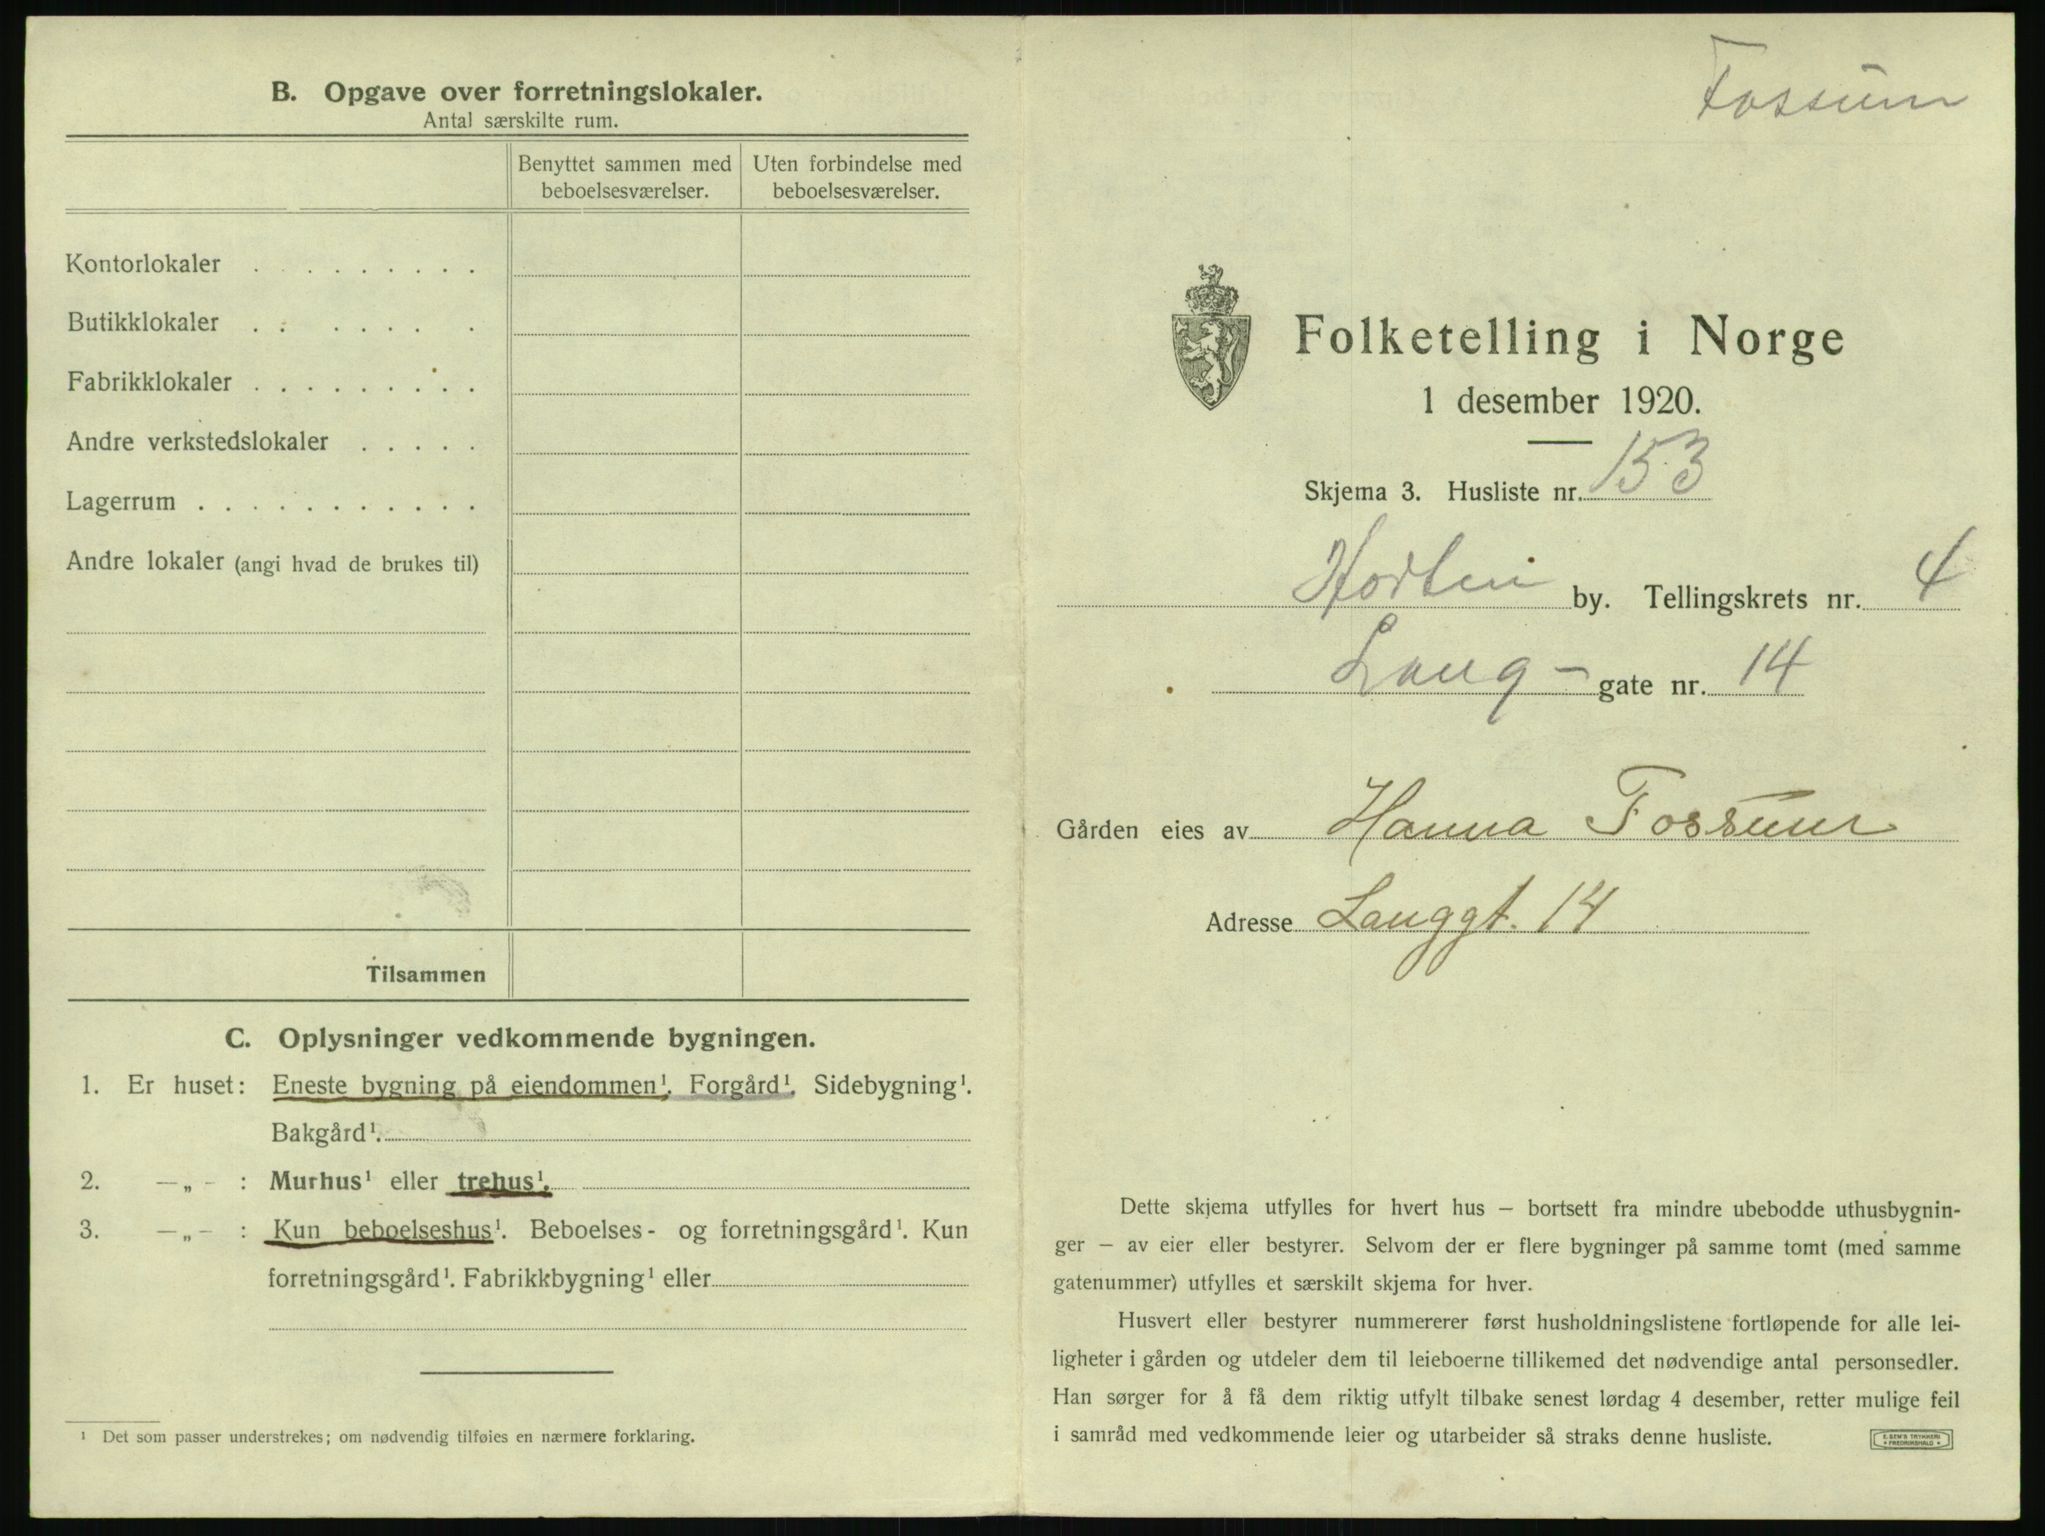 B. Opgave over forretningslokaler.
Antal særskilte rum.
Benyttet sammen med
beboelsesværelser.
Uten forbindelse med
beboelsesværelser.
Kontorlokaler . . . . . . . . .
Butikklokaler . . . . . . .
Fabrikklokaler . . . . . . . . .
Andre verkstedslokaler . . . . .
Lagerrum . . . . . . . . . . .
Andre lokaler (angi hvad de brukes til)
Tilsammen
C. Oplysninger vedkommende bygningen.
1. Er huset: Eneste bygning på eiendommen¹. Forgård¹. Sidebygning¹.
Bakgård¹.
2. —„— : Murhus¹ eller trehus¹.
3. —„— : Kun beboelseshus¹. Beboelses- og forretningsgård¹. Kun
forretningsgård¹. Fabrikkbygning¹ eller
¹ Det som passer understrekes; om nødvendig tilføies en nærmere forklaring.
Fossum
Folketelling i Norge
1 desember 1920.
Skjema 3. Husliste nr. 153
Horten by. Tellingskrets nr. 4
Lang- gate nr. 14
Gården eies av Hanna Fossum
Adresse Langgt. 14
Dette skjema utfylles for hvert hus – bortsett fra mindre ubebodde uthusbygnin-
ger – av eier eller bestyrer. Selvom der er flere bygninger på samme tomt (med samme
gatenummer) utfylles et særskilt skjema for hver.
Husvert eller bestyrer nummererer først husholdningslistene fortløpende for alle lei-
ligheter i gården og utdeler dem til leieboerne tillikemed det nødvendige antal personsedler.
Han sørger for å få dem riktig utfylt tilbake senest lørdag 4 desember, retter mulige feil
i samråd med vedkommende leier og utarbeider så straks denne husliste.
E. SEM'S TRYKKERI
FREDRIKSHALD